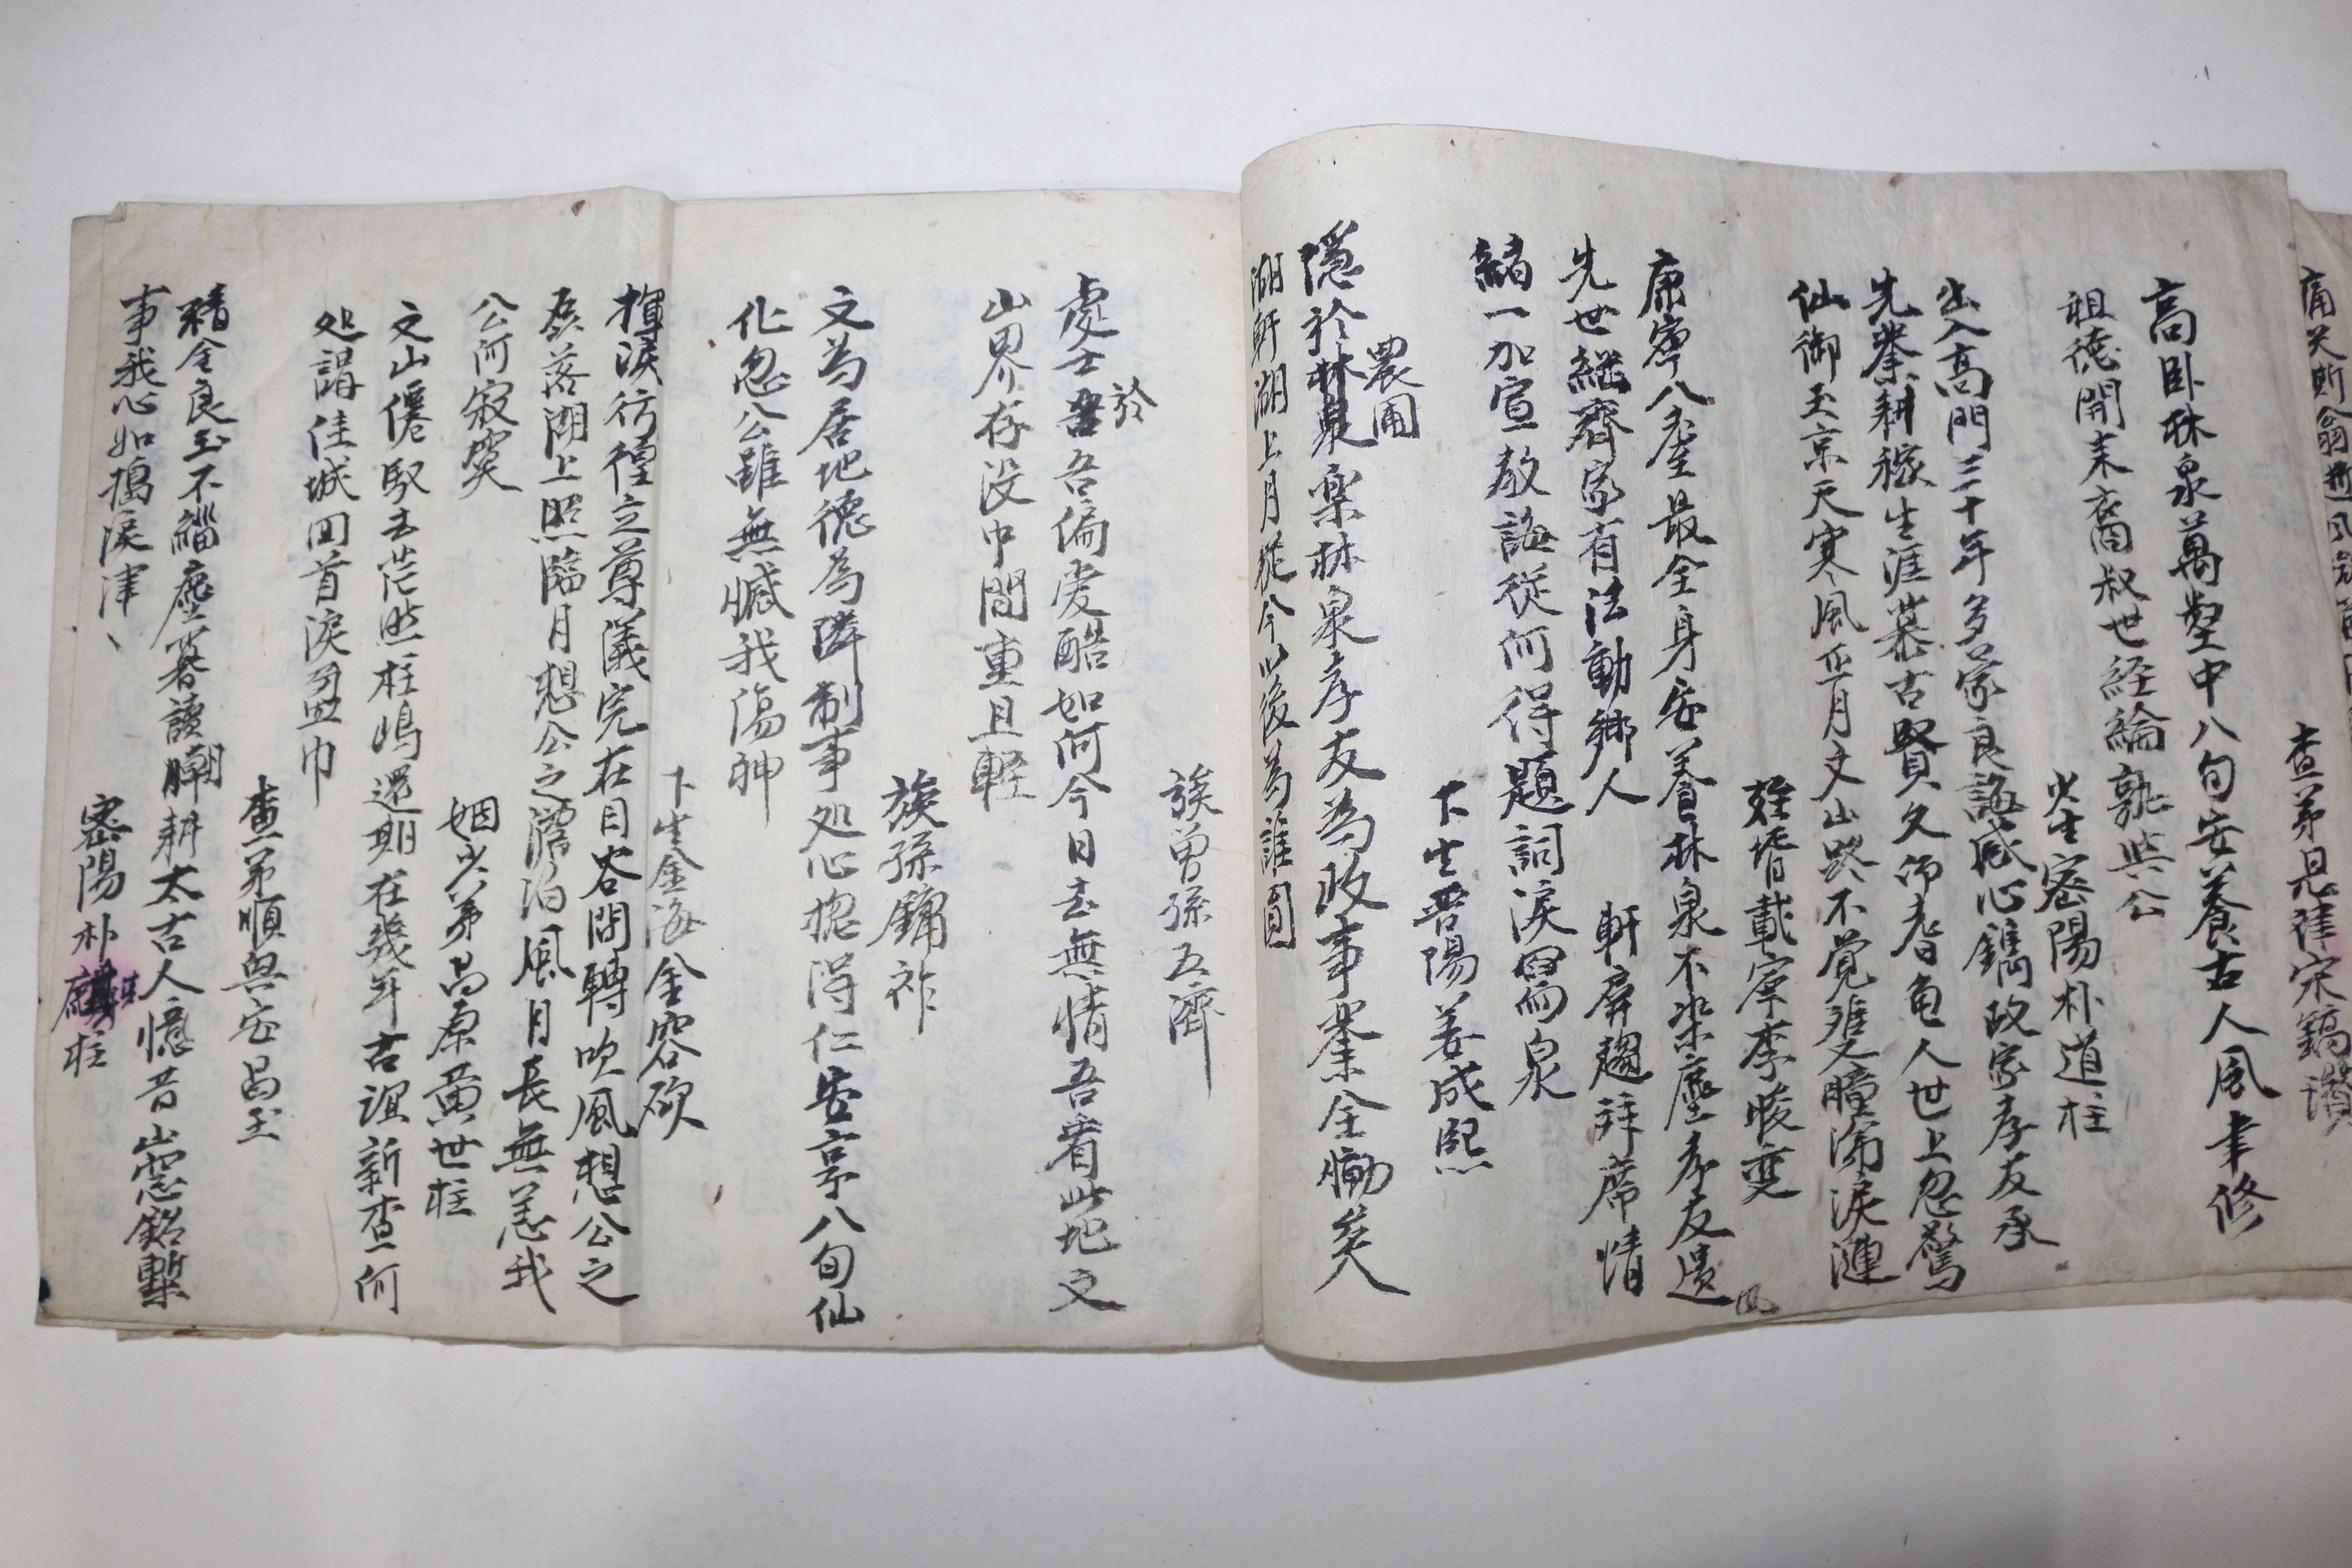 查弟 宋鎬瓚
高卧林泉萬壑中八旬安養古人風聿修
祖德開來裔叔世経綸孰與公
少生密陽朴道柱
出入高門三十年多蒙良誨感心鐫政家孝友承
先業耕稼生涯慕古賢久仰耆龜人世上忽驚
仙御玉京天寒風正月文山路不覚雙瞳滯淚漣
姪壻載寧李晙奭
康寧八耋最全身安養林泉不染塵孝友遺風
先世継齊家有法動鄉人 軒屏趨拜席情
緒一加宣敖誨従何得題詞淚眉泉
下生晋陽姜成熙
農圃
隱於林泉楽林泉孝友為政事業全慟矣
湖軒湖上月従今以後為誰圓
族曽孫五濟
於
處士吾吾偏愛酷如何今日去無情吾看此地文
山界存没中間重且輕
族孫鏞祚
文為居地德為隣制事処心揔得仁安享八旬仙
化忽公雖無憾我傷神
下生金海金容硕
揮淚彷徨立尊儀完在目咨問轉吹風想公之
磊落湖上照臨月想公之澹泊風月長無恙我
公何寂寞
姻少弟昌原黄世柱
文山僊馭去茫然柱嶋還期在幾年古誼新查何
処謂佳城回首淚盈巾
查弟順興安昌玉
精金良玉不緇塵暮讀朝耕太古人憶昔山窓銘槧
事我心如搗淚津丶
密陽朴 柱